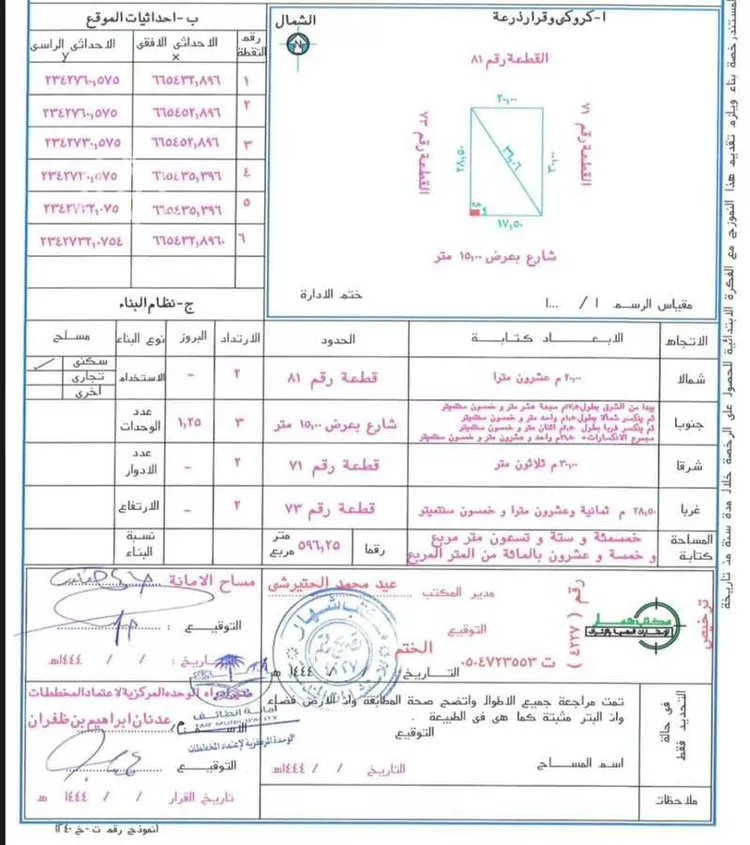 أ-كروكي وقرار ذرعة
الشمال
N
القطعة رقم ٨١
القطعة رقم ٧١
القطعة رقم ٧٣
٢٠,٠٠
٣٠,٠٠
٢٨,٥٠
٣٦,٠٦
١٧,٥٠
شارع بعرض ١٥,٠٠ متر
مقياس الرسم ١ / ...
ختم الادارة
ب-احداثيات الموقع
رقم النقطة
الاحداثي الافقي x
الاحداثي الراسي y
١ ٦٦٥٤٣٢,٨٩٦ ٢٣٤٢٧٦٠,٥٧٥
٢ ٦٦٥٤٥٢,٨٩٦ ٢٣٤٢٧٦٠,٥٧٥
٣ ٦٦٥٤٥٢,٨٩٦ ٢٣٤٢٧٣٠,٥٧٥
٤ ٦٦٥٤٣٥,٣٩٦ ٢٣٤٢٧٣٠,٥٧٥
٥ ٦٦٥٤٣٥,٣٩٦ ٢٣٤٢٧٣٢,٠٧٥
٦ ٦٦٥٤٣٢,٨٩٦٠ ٢٣٤٢٧٣٢,٠٧٥٤
ج-نظام البناء
الاتجاه الابعاد كتابة الحدود الارتداد البروز نوع البناء مسلح
شمالا ٢٠,٠٠ م عشرون مترا قطعة رقم ٨١ ٢ - الاستخدام
سكني
تجاري
أخرى
جنوبا
يبدا من الشرق بطول ١٧,٥ م سبعة عشر متر و خمسون سنتميتر
ثم ينكسر شمالا بطول ١,٥ م واحد متر و خمسون سنتميتر
ثم ينكسر غربا بطول ٢,٥ م اثنان متر و خمسون سنتميتر
مجموع الانكسارات = ٢١,٥ م واحد و عشرون متر و خمسون سنتميتر
شارع بعرض ١٥,٠٠ متر ٣ ١,٢٥ عدد الوحدات
شرقا ٣٠,٠٠ م ثلاثون متر قطعة رقم ٧١ ٢ - عدد الادوار
غربا ٢٨,٥٠ م ثمانية وعشرون مترا و خمسون سنتميتر قطعة رقم ٧٣ ٢ - الارتفاع
المساحة كتابة
خمسمئة و ستة و تسعون متر مربع
و خمسة و عشرون بالمائة من المتر المربع
رقما ٥٩٦,٢٥ متر مربع
نسبة البناء
ترخيص رقم ( ٤٢٢٧ )
مكتب شهار
ت ٠٥٠٤٧٢٣٥٥٣
مدير المكتب عيد محمد الحتيرشي
التوقيع
الختم
التاريخ / / ١٤٤٤هـ
مساح الامانة
التوقيع :
التاريخ : / / ١٤٤٤هـ
أمانة الطائف
TAIF MUNICIPALITY
الوحدة المركزية لاعتماد المخططات
مدير الوحده المركزية لاعتماد المخططات
الاسم م عدنان ابراهيم بن ظفران
التوقيع :
تاريخ القرار / / ١٤٤٤ هـ
في حالة التحديد فقط
تمت مراجعة جميع الاطوال واتضح صحة المطابقة وان الارض فضاء
وان البتر مثبتة كما هي في الطبيعة .
التوقيع
اسم المساح
التاريخ / / ١٤٤٤هـ
ملاحظات
(نموذج رقم ت-خ-٢٤)
رخصة بناء ويلزم تقديم هذا النموذج مع الفكرة الابتدائية للحصول على الرخصة خلال مدة سنة من تاريخه